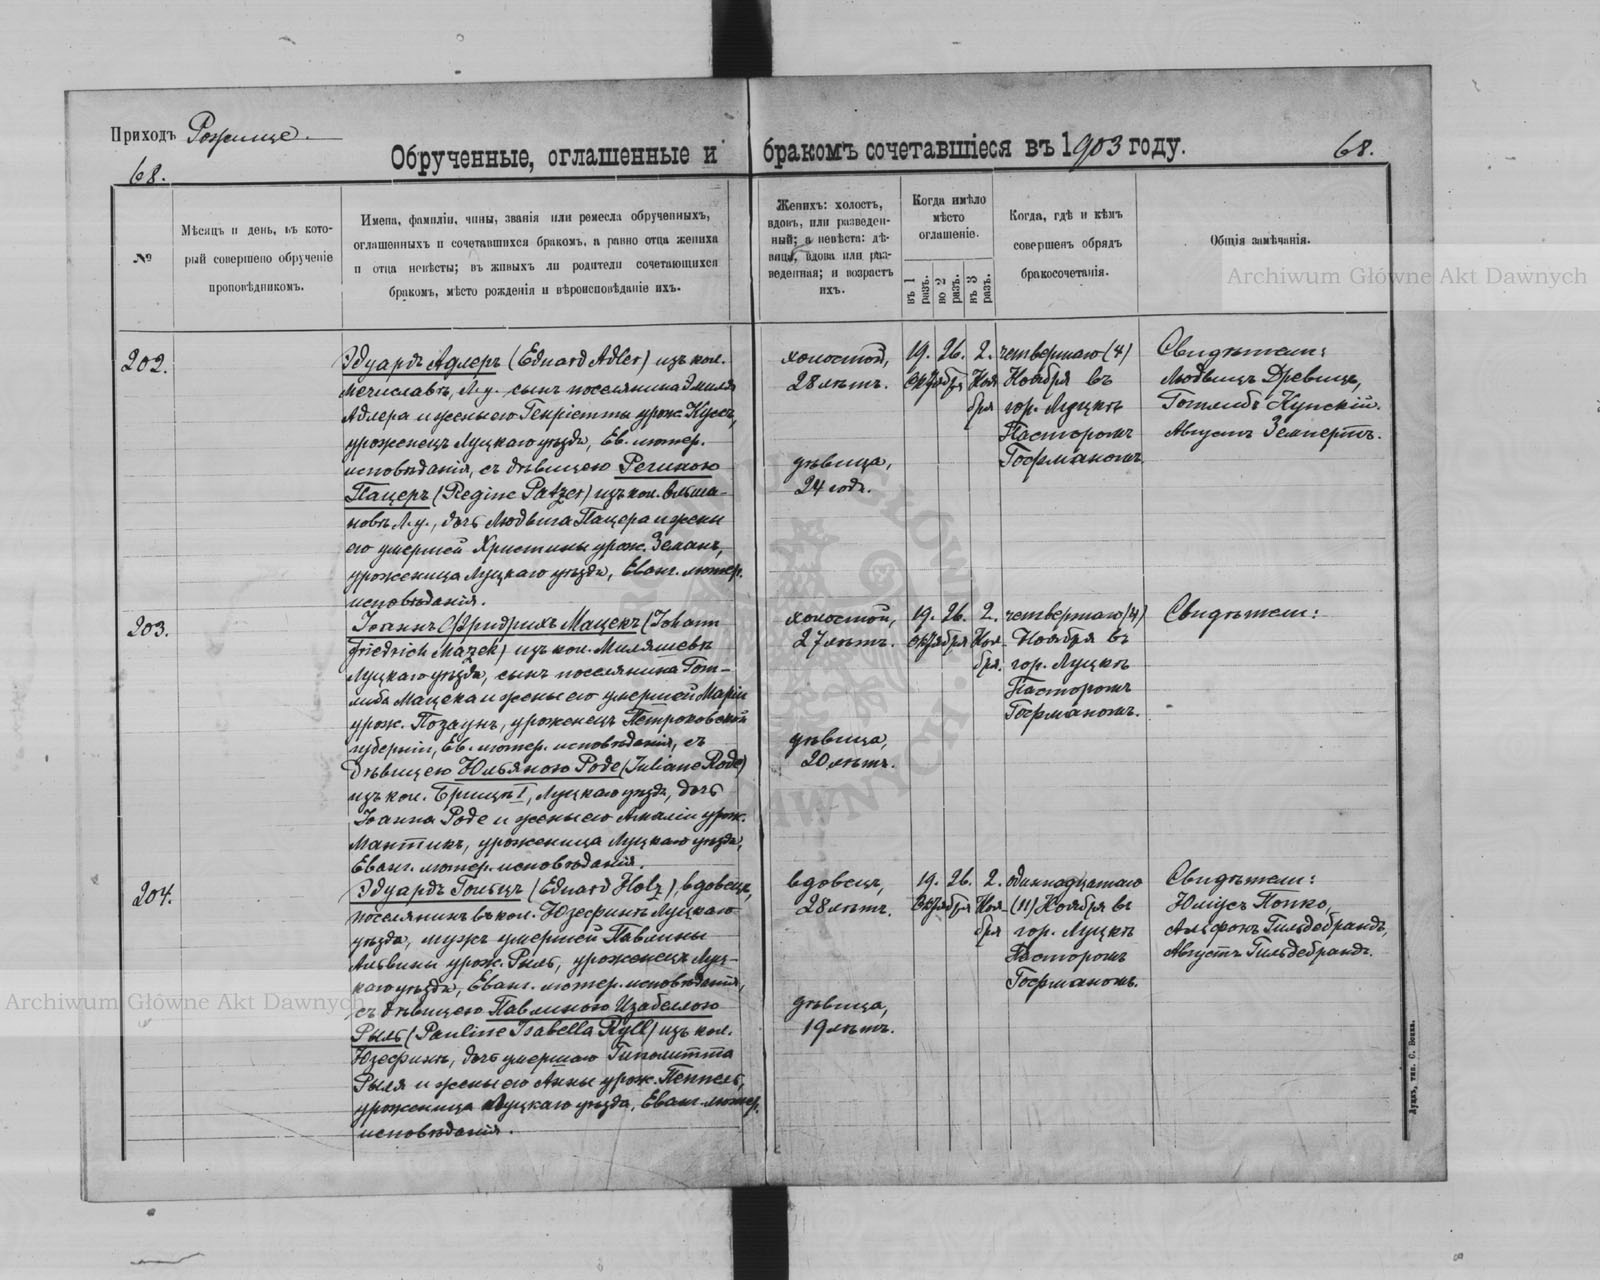 Приходъ Рожище.
Обрученные, оглашенные и бракомъ сочетавшіеся въ 1903 году.
68.
68.
№
Мѣсяцъ и день, въ кото-
рый совершено обрученіе
проповѣдникомъ.
Имена, фамиліи, чины, званія или ремесла обрученныхъ,
оглашенныхъ и сочетавшихся бракомъ, а равно отца жениха
и отца невѣсты; въ живыхъ ли родители сочетающихся
бракомъ, мѣсто рожденія и вѣроисповѣданіе ихъ.
Женихъ: холостъ,
вдовъ, или разведен-
ный; а невѣста: дѣ-
вица, вдова или раз-
веденная; и возрастъ
ихъ.
Когда имѣло
мѣсто
оглашеніе.
въ 1 разъ.
во 2 разъ.
въ 3 разъ.
Когда, гдѣ и кѣмъ
совершенъ обрядъ
бракосочетанія.
Общія замѣчанія.
202.
Эдуардъ Адлеръ (Eduard Adler) изъ кол.
Мечиславъ, Л.у., сынъ поселянина Эмиля
Адлера и жены его Генріетты урож. Куссъ,
уроженецъ Луцкаго уѣзда, Ев. лютер.
исповѣданія, съ дѣвицею Региною
Пацеръ (Regine Patzer) изъ кол.
Л.у., дочь Людвига Пацера и жены
его умершей Христины урож. Земанъ,
уроженица Луцкаго уѣзда, Еванг. лютер.
исповѣданія.
холостой,
28 лѣтъ.
дѣвица,
24 года.
19. 26. 2.
октября Ноя
бря
четвертаго (4)
Ноября въ
гор. Луцкѣ
Пасторомъ
Гофманомъ.
Свидѣтели:
Людвигъ Древицъ,
Готлибъ Купскій.
Августъ Земпертъ.
203.
Іоаннъ Фридрихъ Мацекъ (Johann
Friedrich Mazek) изъ кол. Миляшевъ
Луцкаго уѣзда, сынъ поселянина Гот-
либа Мацека и жены его умершей Маріи
урож. Позаунъ, уроженецъ Петроковской
губерніи, Ев. лютер. исповѣданія, съ
дѣвицею Юльяною Роде (Juliane Rode)
изъ кол. I, Луцкаго уѣзда, дочь
Іоанна Роде и жены его Амаліи урож.
Мантикъ, уроженица Луцкаго уѣзда,
Еванг. лютер. исповѣданія.
холостой,
27 лѣтъ.
дѣвица,
20 лѣтъ.
19. 26. 2.
октября Ноя-
бря.
четвертаго (4)
Ноября въ
гор. Луцкѣ
Пасторомъ
Гофманомъ.
Свидѣтели:
204.
Эдуардъ Гольцъ (Eduard Holz), вдовецъ,
поселянинъ въ кол. Юзефинъ Луцкаго
уѣзда, мужъ умершей Павлины
Альвины урож. Рыль, уроженецъ Луц-
каго уѣзда, Еванг. лютер. исповѣданія,
съ дѣвицею Павлиною Изабеллою
Рыль (Pauline Isabella Ryll) изъ кол.
Юзефинъ, дочь умершаго Гиполитта
Рыля и жены его Анны урож. Пеппель,
уроженица Луцкаго уѣзда, Еванг. лютер.
исповѣданія.
вдовецъ,
28 лѣтъ.
дѣвица,
19 лѣтъ.
19. 26. 2.
октября Ноя-
бря
одиннадцатаго
(11) Ноября въ
гор. Луцкѣ
Пасторомъ
Гофманомъ.
Свидѣтели:
Юліусъ Попко,
Альфонъ Гильдебрандъ,
Августъ Гильдебрандъ.
Луцкъ, тип. С. Бонка.
Archiwum Główne Akt Dawnych
Archiwum Główne Akt Dawnych